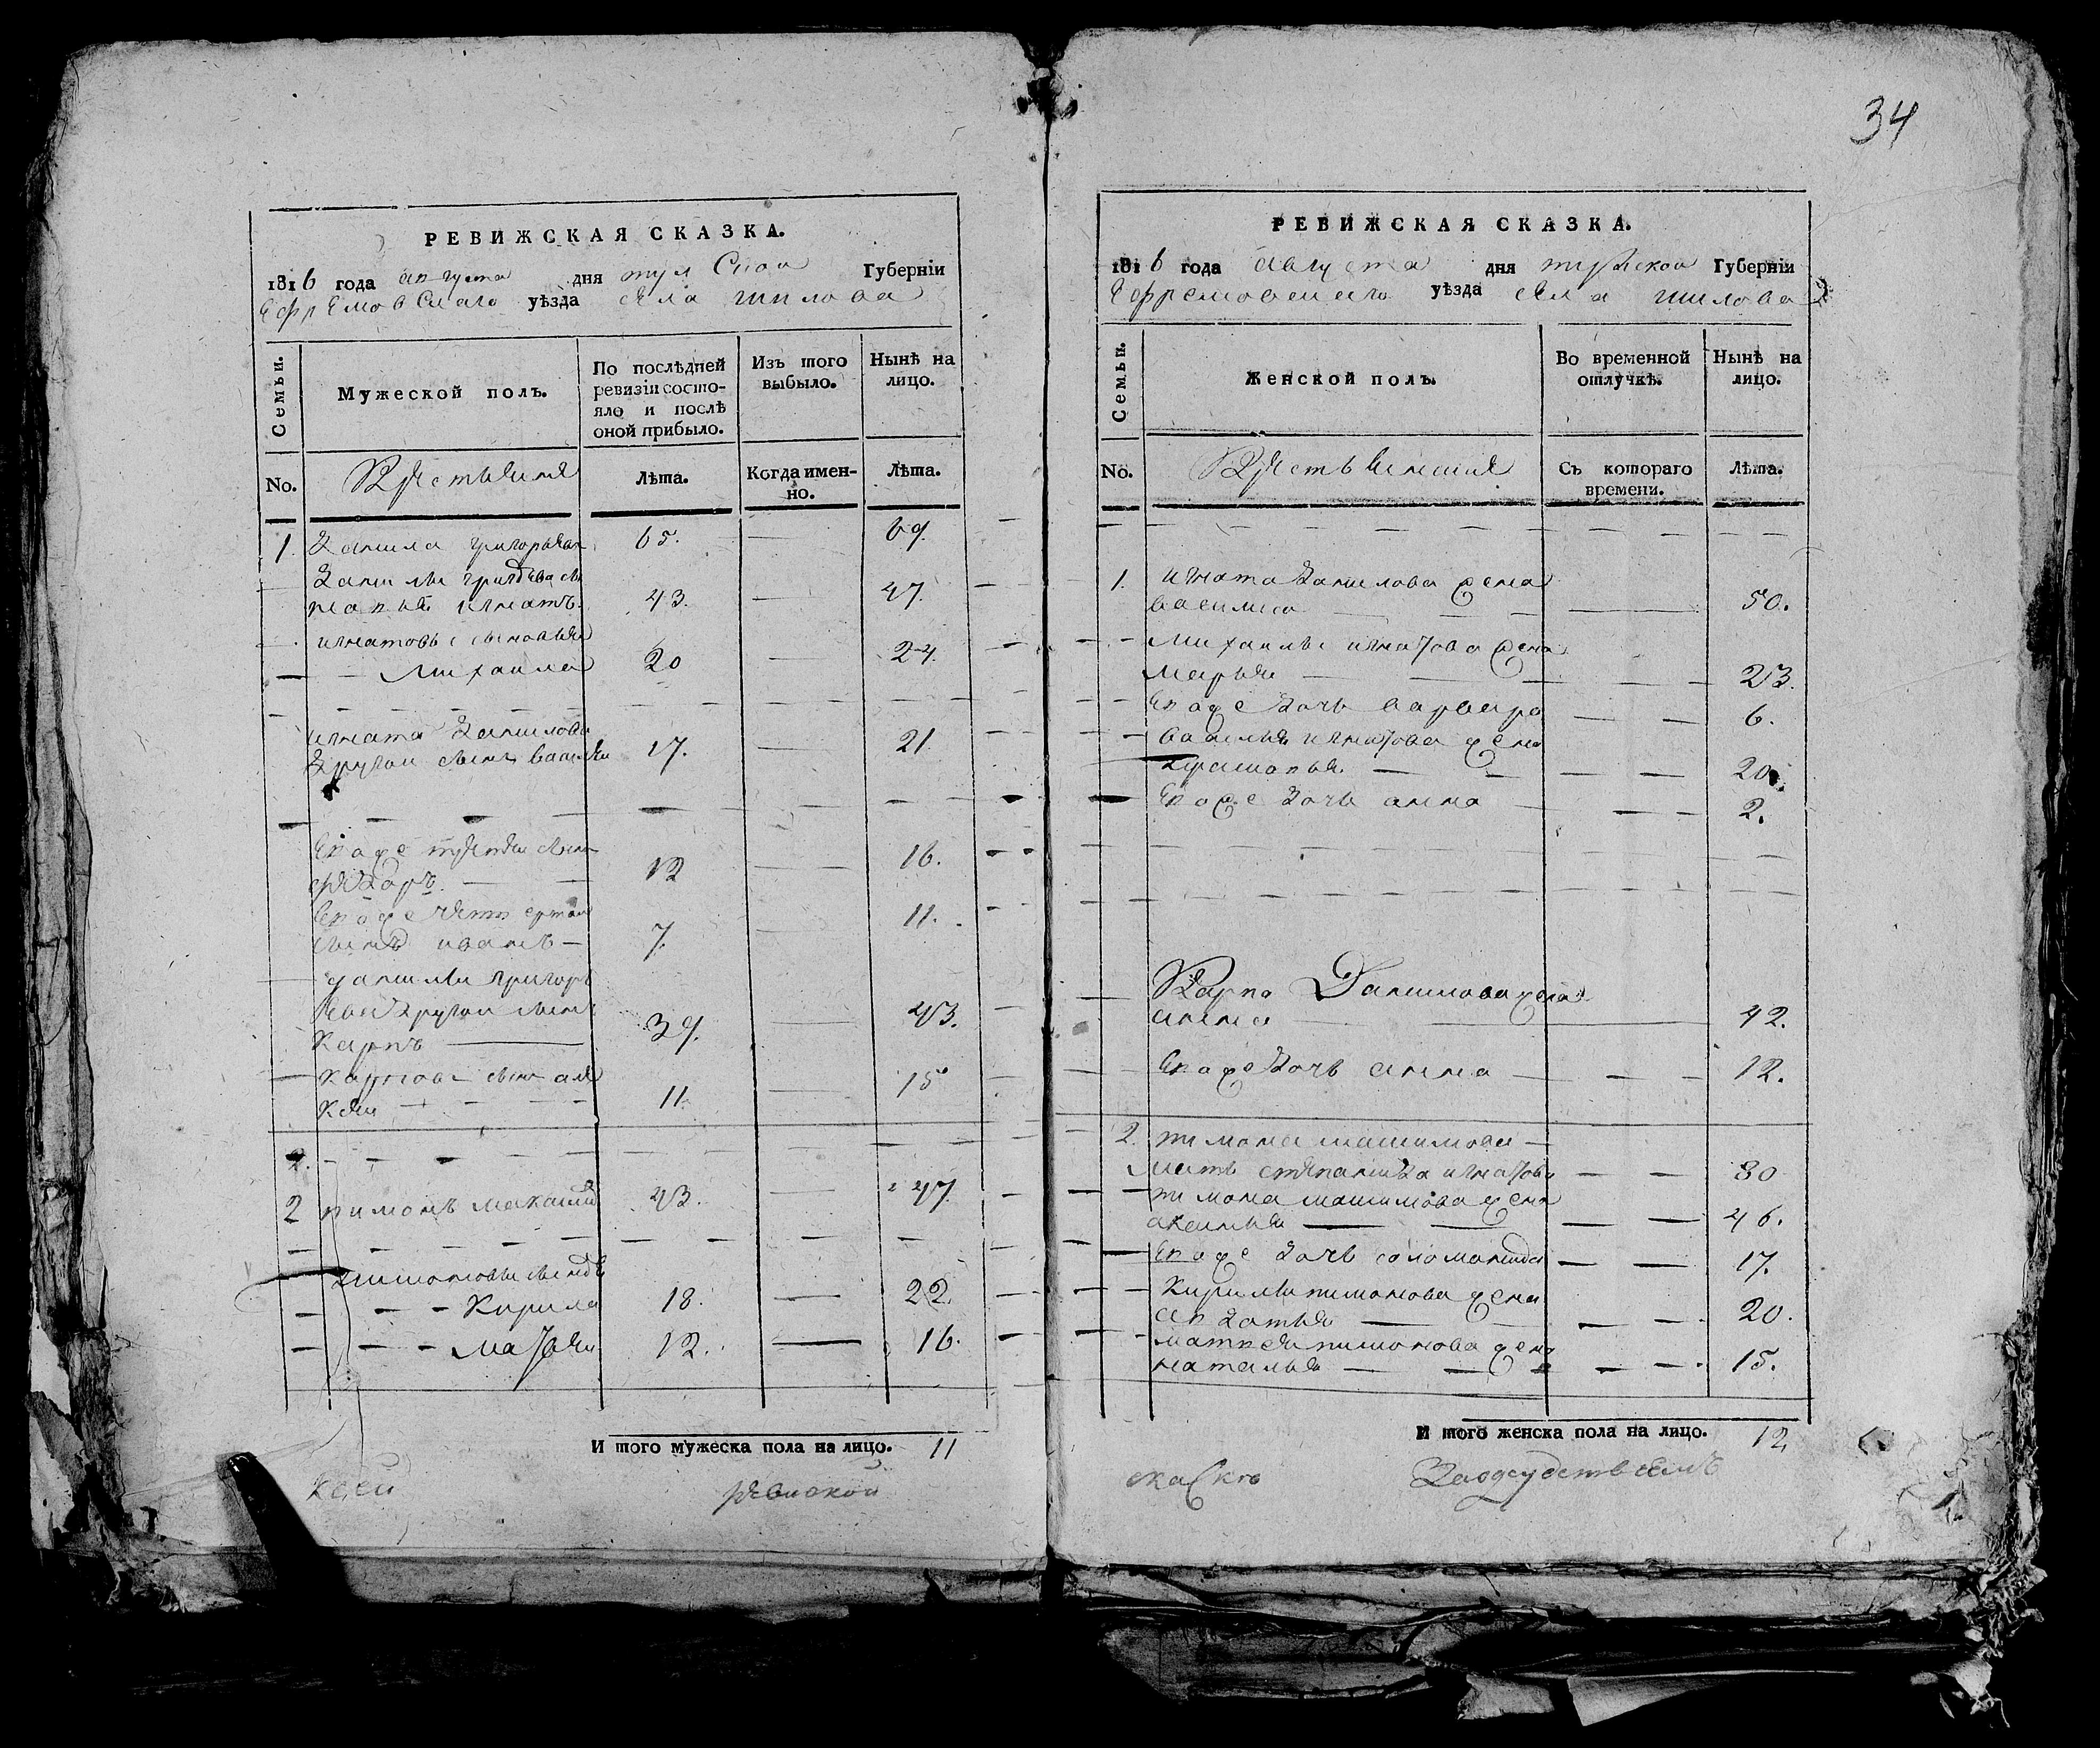 34
РЕВИЖСКАЯ СКАЗКА.
1816 года августа дня тулской Губерніи
ефремовскаго уѣзда села шилова
Семьи.
Мужеской полъ.
По послѣдней ревизіи состояло и послѣ оной прибыло.
Изъ того выбыло.
Нынѣ на лицо.
No.
Крестьяня
Лѣта.
Когда именно.
Лѣта.
1 Данила григорьев 65. — 69.
Данилы григоьева сы
новья игнатъ 43. — 47.
игнатовы сыновья
— Михаила 20 — 24.
игната Данилова
Другои сынъ василеи 17. — 21.
ево же третеи сынъ
федоръ. — 12 — 16.
ево же четвертои
сынъ иванъ — 7. — 11.
данилы григорь
ева Другои сынъ
Карпъ — 39. — 43.
Карповъ сынъ але
Кеи — 11. — 15
2.
2 тимонъ макшим 43. — 47.
тимоновы сыновья
— Кирила 18. — 22.
— матвеи 12. — 16.
И того мужеска пола на лицо. 11
Ксеи ревиской
РЕВИЖСКАЯ СКАЗКА.
1816 года августа дня тулской Губерніи
ефремовскаго уѣзда села шилова
Семьи.
Женской полъ.
Во временной отлучкѣ.
Нынѣ на лицо.
No.
Крестьянския
Съ котораго времени.
Лѣта.
1. игната Данилова жена
василиса — 50.
Михаилы игнатова жена
марья — 23.
ево же Дочь варвара — 6.
василья игнатова жена
— 20.
ево же Дочь анна — 2.
Карпа Данилова жена
анна — 42.
ево же Дочь анна — 12.
2. тимона макшимова —
мать степанида игнатова — 80
тимона макшимова жена
аксинья — 46.
ево же Дочь соломанида — 17.
Кирилы тимонова жена
авдотья — 20.
матвея тимонова жена
наталья — 15.
И того женска пола на лицо. 12
скаску